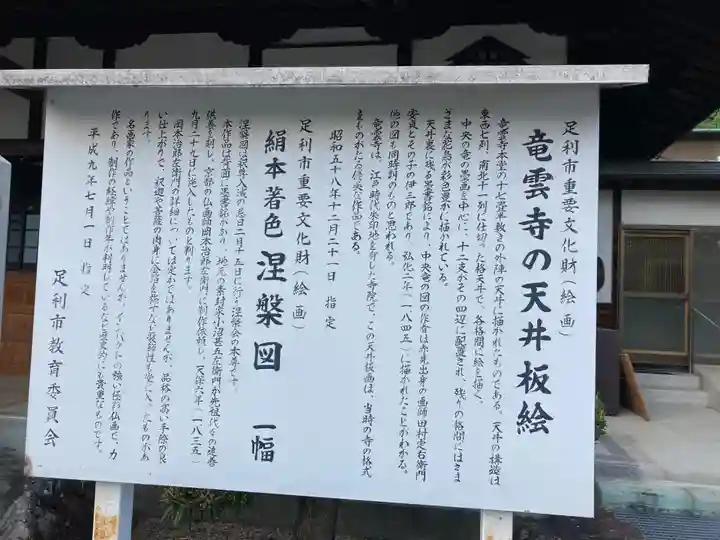 足利市重要文化財(絵画)
竜雲寺の天井板絵
竜雲寺本堂の十七畳半敷きの外陣の天井に描かれたものである。天井の構造は
東西七列、南北十一列に仕切った格天井で、各格間に絵を描く。
中央の竜の墨画を中心に、十二支がその四辺に配置され、残りの格間にはさま
ざまな花鳥が彩色豊かに描かれている。
天井裏に残る墨書銘により、中央竜の図の作者は赤見出身の画師田村定右衛門
安貞とその子の伊三郎であり、弘化二年(一八四五)に描かれたことがわかる。
他の図も同時期のものと思われる。
竜雲寺は、江戸時代朱印地を有した寺院で、この天井板画は、当時の寺の格式
をものがたる優秀な作品である。
昭和五十八年十二月二十一日 指定
足利市重要文化財(絵画)
絹本著色 涅槃図 一幅
涅槃図は釈尊入滅の忌日二月十五日に行う涅槃会の本尊です。
本作品は天蓋に墨書銘があり、地元の素封家小沼甚五左衛門が先祖代々の追善
供養を刺し、京都の仏画師岡本治郎左衛門に制作依頼し、天保六年(一八三五)
九月二十九日に施入したものと判ります。
岡本治郎左衛門の詳細については定かではありませんが、品格の高い手際の良
い仕上がりで、釈迦や菩薩の肉身に金泥を施すなど装飾性も考に入ったものがあ
ります。
名画家の作品ということではありませんが、インパクトの強い極彩仏画で、力
作であり、制作の経緯や制作年が判明しているなど歴史的にも貴重なものです。
平成九年七月一日 指定
足利市教育委員会